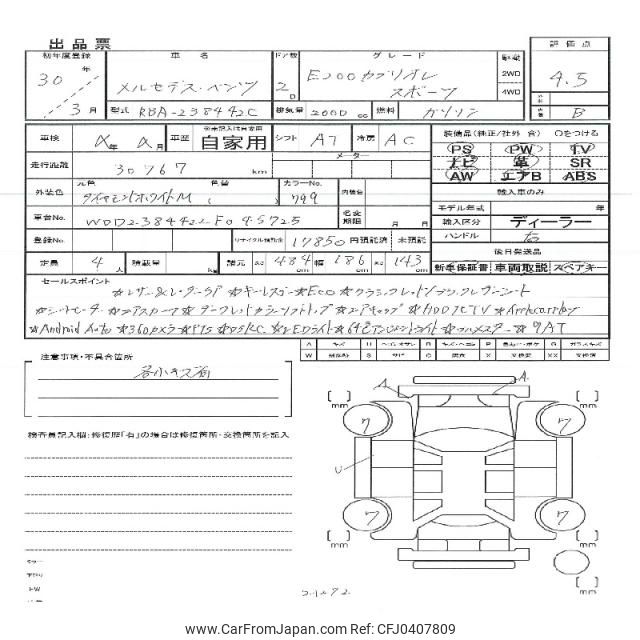 出品票
初年度登録 車名 ドア数 グレード 駆動 評価点
30年 3月
メルセデス・ベンツ 2D E200カブリオレ スポーツ 2WD 4WD 4.5
型式 RBA-238442C 排気量 2000 cc 燃料 ガソリン B
車検 年 月 車歴 ※未記入は自家用 自家用 シフト AT 冷房 AC 装備品(純正/社外 含) ○をつける
走行距離 30767 km メーター
PS PW TV
ナビ 革 SR
AW エアB ABS
外装色 元色 ダイヤモンドホワイトM 色替 ( カラーNo. 799 内装色
輸入車のみ
モデル年式 年
車台No. WDD2384422F045725 名変期限 月 日
輸入区分 ディーラー
登録No. リサイクル預託金 17850 円預託済 未預託
ハンドル 右
定員 4人 積載量 kg 諸元 長さ 484 cm 幅 186 cm 高さ 143 cm
後日発送品
新車保証書 車両取説 スペアキー
セールスポイント
☆レザー&レーダーSP ☆キーレスゴー ☆ECO ☆クラシックレッド/ブラックレザーシート
☆シートヒーター ☆エアスカーフ ☆ダークレッドカラーソフトトップ ☆エアキャップ ☆HDDナビTV ☆Applecarplay
☆Android Auto ☆360°カメラ ☆PTS ☆DSRC ☆LEDライト ☆64色アンビエントライト ☆ブルメスター ☆9AT
注意事項・不具合箇所
各小キズ有
検査員記入欄:修復歴「有」の場合は修復箇所・交換箇所を記入
A A
U
7 7
7 7
mm mm
mm mm
CarFromJapan Car ID: PKC40407809